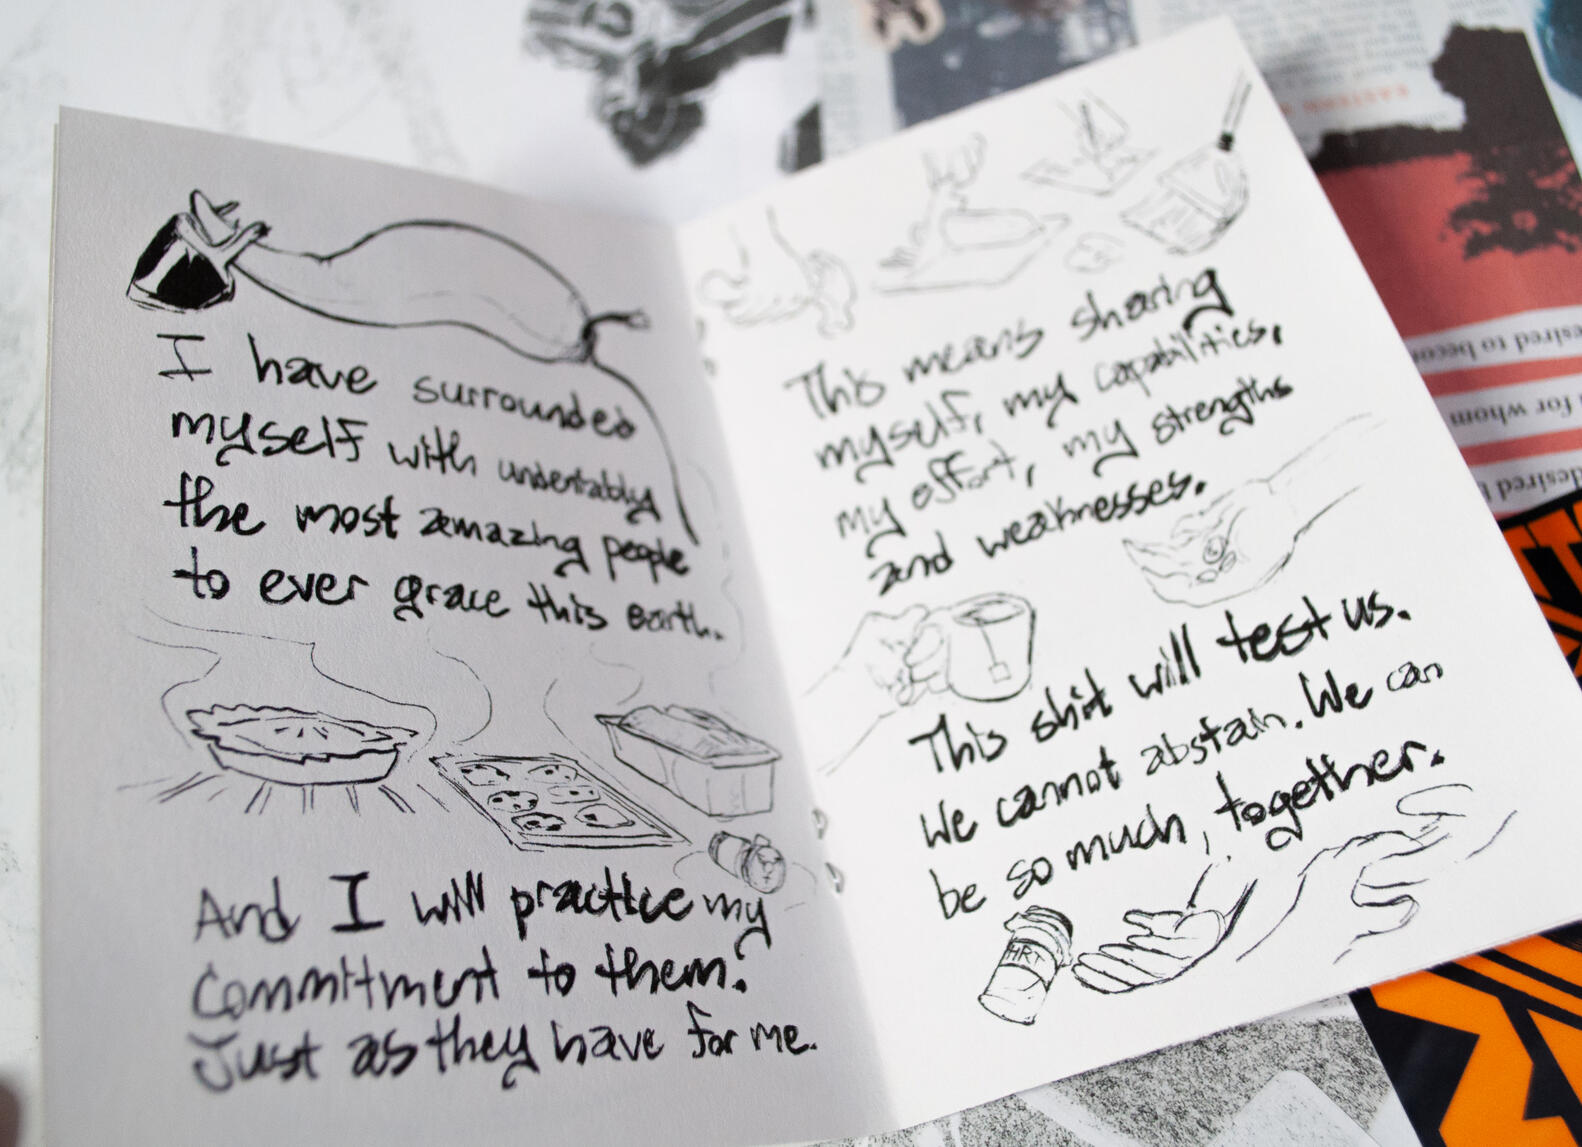 I have surrounded
myself with undeniably
the most amazing people
to ever grace this earth.
And I will practice my
commitment to them.
Just as they have for me.
This means sharing
myself, my capabilities,
my effort, my strengths
and weaknesses.
This shit will test us.
We cannot abstain. We can
be so much, together.
HRT
EASTERN
desired to become
for whom
desired